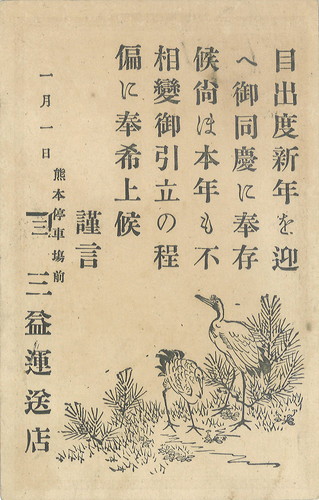 目出度新年を迎
へ御同慶に奉存
候尙ほ本年も不
相變御引立の程
偏に奉希上候
謹言
一月一日
熊本停車場前
三益運送店